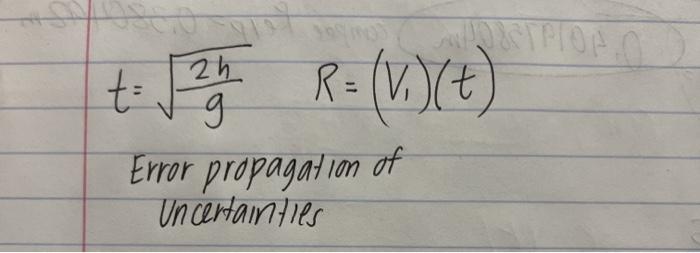 t = √(2h/g) R = (V₁)(t)
Error propagation of
Uncertainties